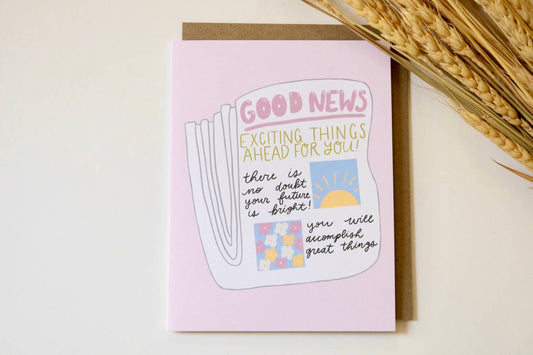 GOOD NEWS
EXCITING THINGS
AHEAD FOR YOU!
there is
no doubt
your future
is bright!
you will
accomplish
great things